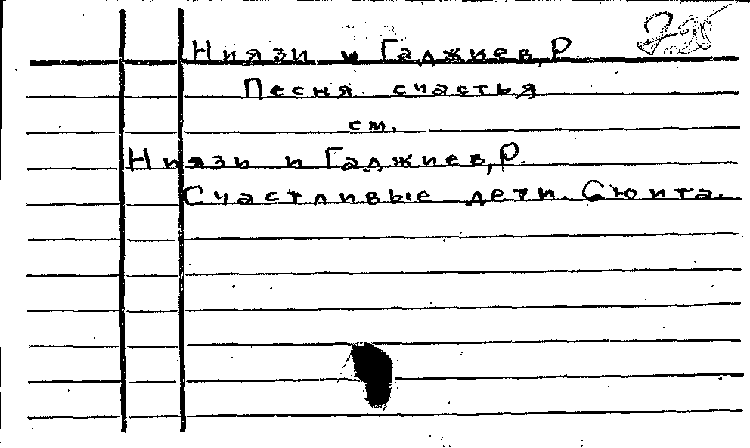 Ниязи и Гаджиев, Р
Песня счастья
см.
Ниязи и Гаджиев, Р.
Счастливые дети. Сюита.